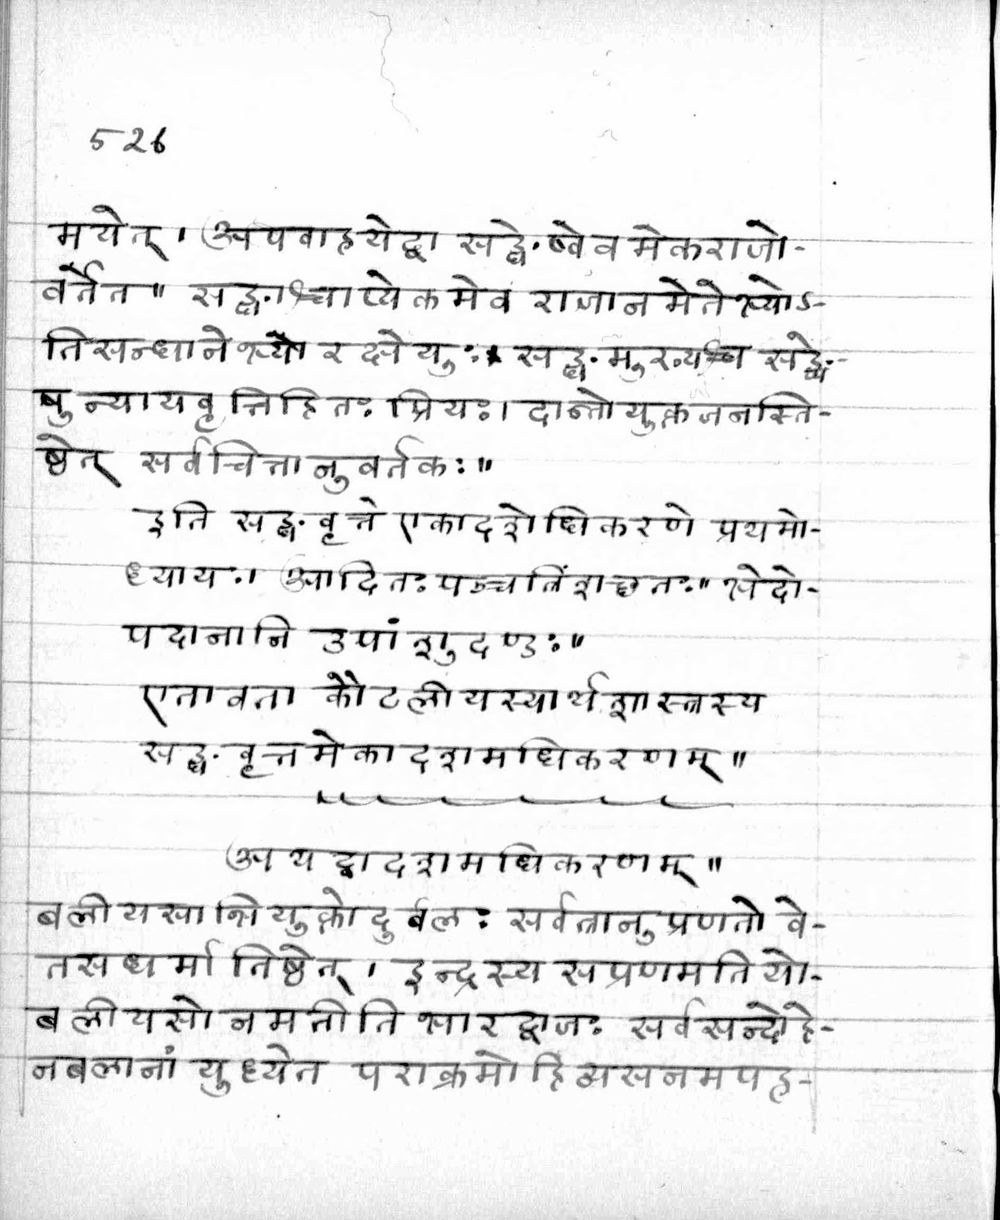 526
मयेत् । अपवाहयेद्वा सङ्घेष्वेवमेकराजो-
वर्तेत ॥ सङ्घाश्चाप्येकमेव राजानमेतेभ्योऽ-
तिसन्धानेभ्यो रक्षेयुः । सङ्घमुख्यश्च सङ्घे-
षु न्यायवृत्तिहितः प्रियः । दान्तोयुक्तजनस्ति-
ष्ठेत् सर्वचित्तानुवर्तकः ॥
इति सङ्घवृत्ते एकादशेधिकरणे प्रथमो-
ध्यायः । आदितः पञ्चत्रिंशच्छतः ॥ भेदो-
पदानानि उपांशुदण्डः ॥
एतावता कौटलीयस्यार्थशास्त्रस्य
सङ्घवृत्तमेकादशमधिकरणम् ॥
अथ द्वादशमधिकरणम् ॥
बलीयसाभियुक्तो दुर्बलः सर्वत्रानुप्रणतो वे-
तसधर्मा तिष्ठेत् । इन्द्रस्य सप्रणमति यो-
बलीयसो नमतीति भारद्वाजः सर्वसन्दोहे-
नबलानां युध्येत पराक्रमोहि व्यसनमपह-